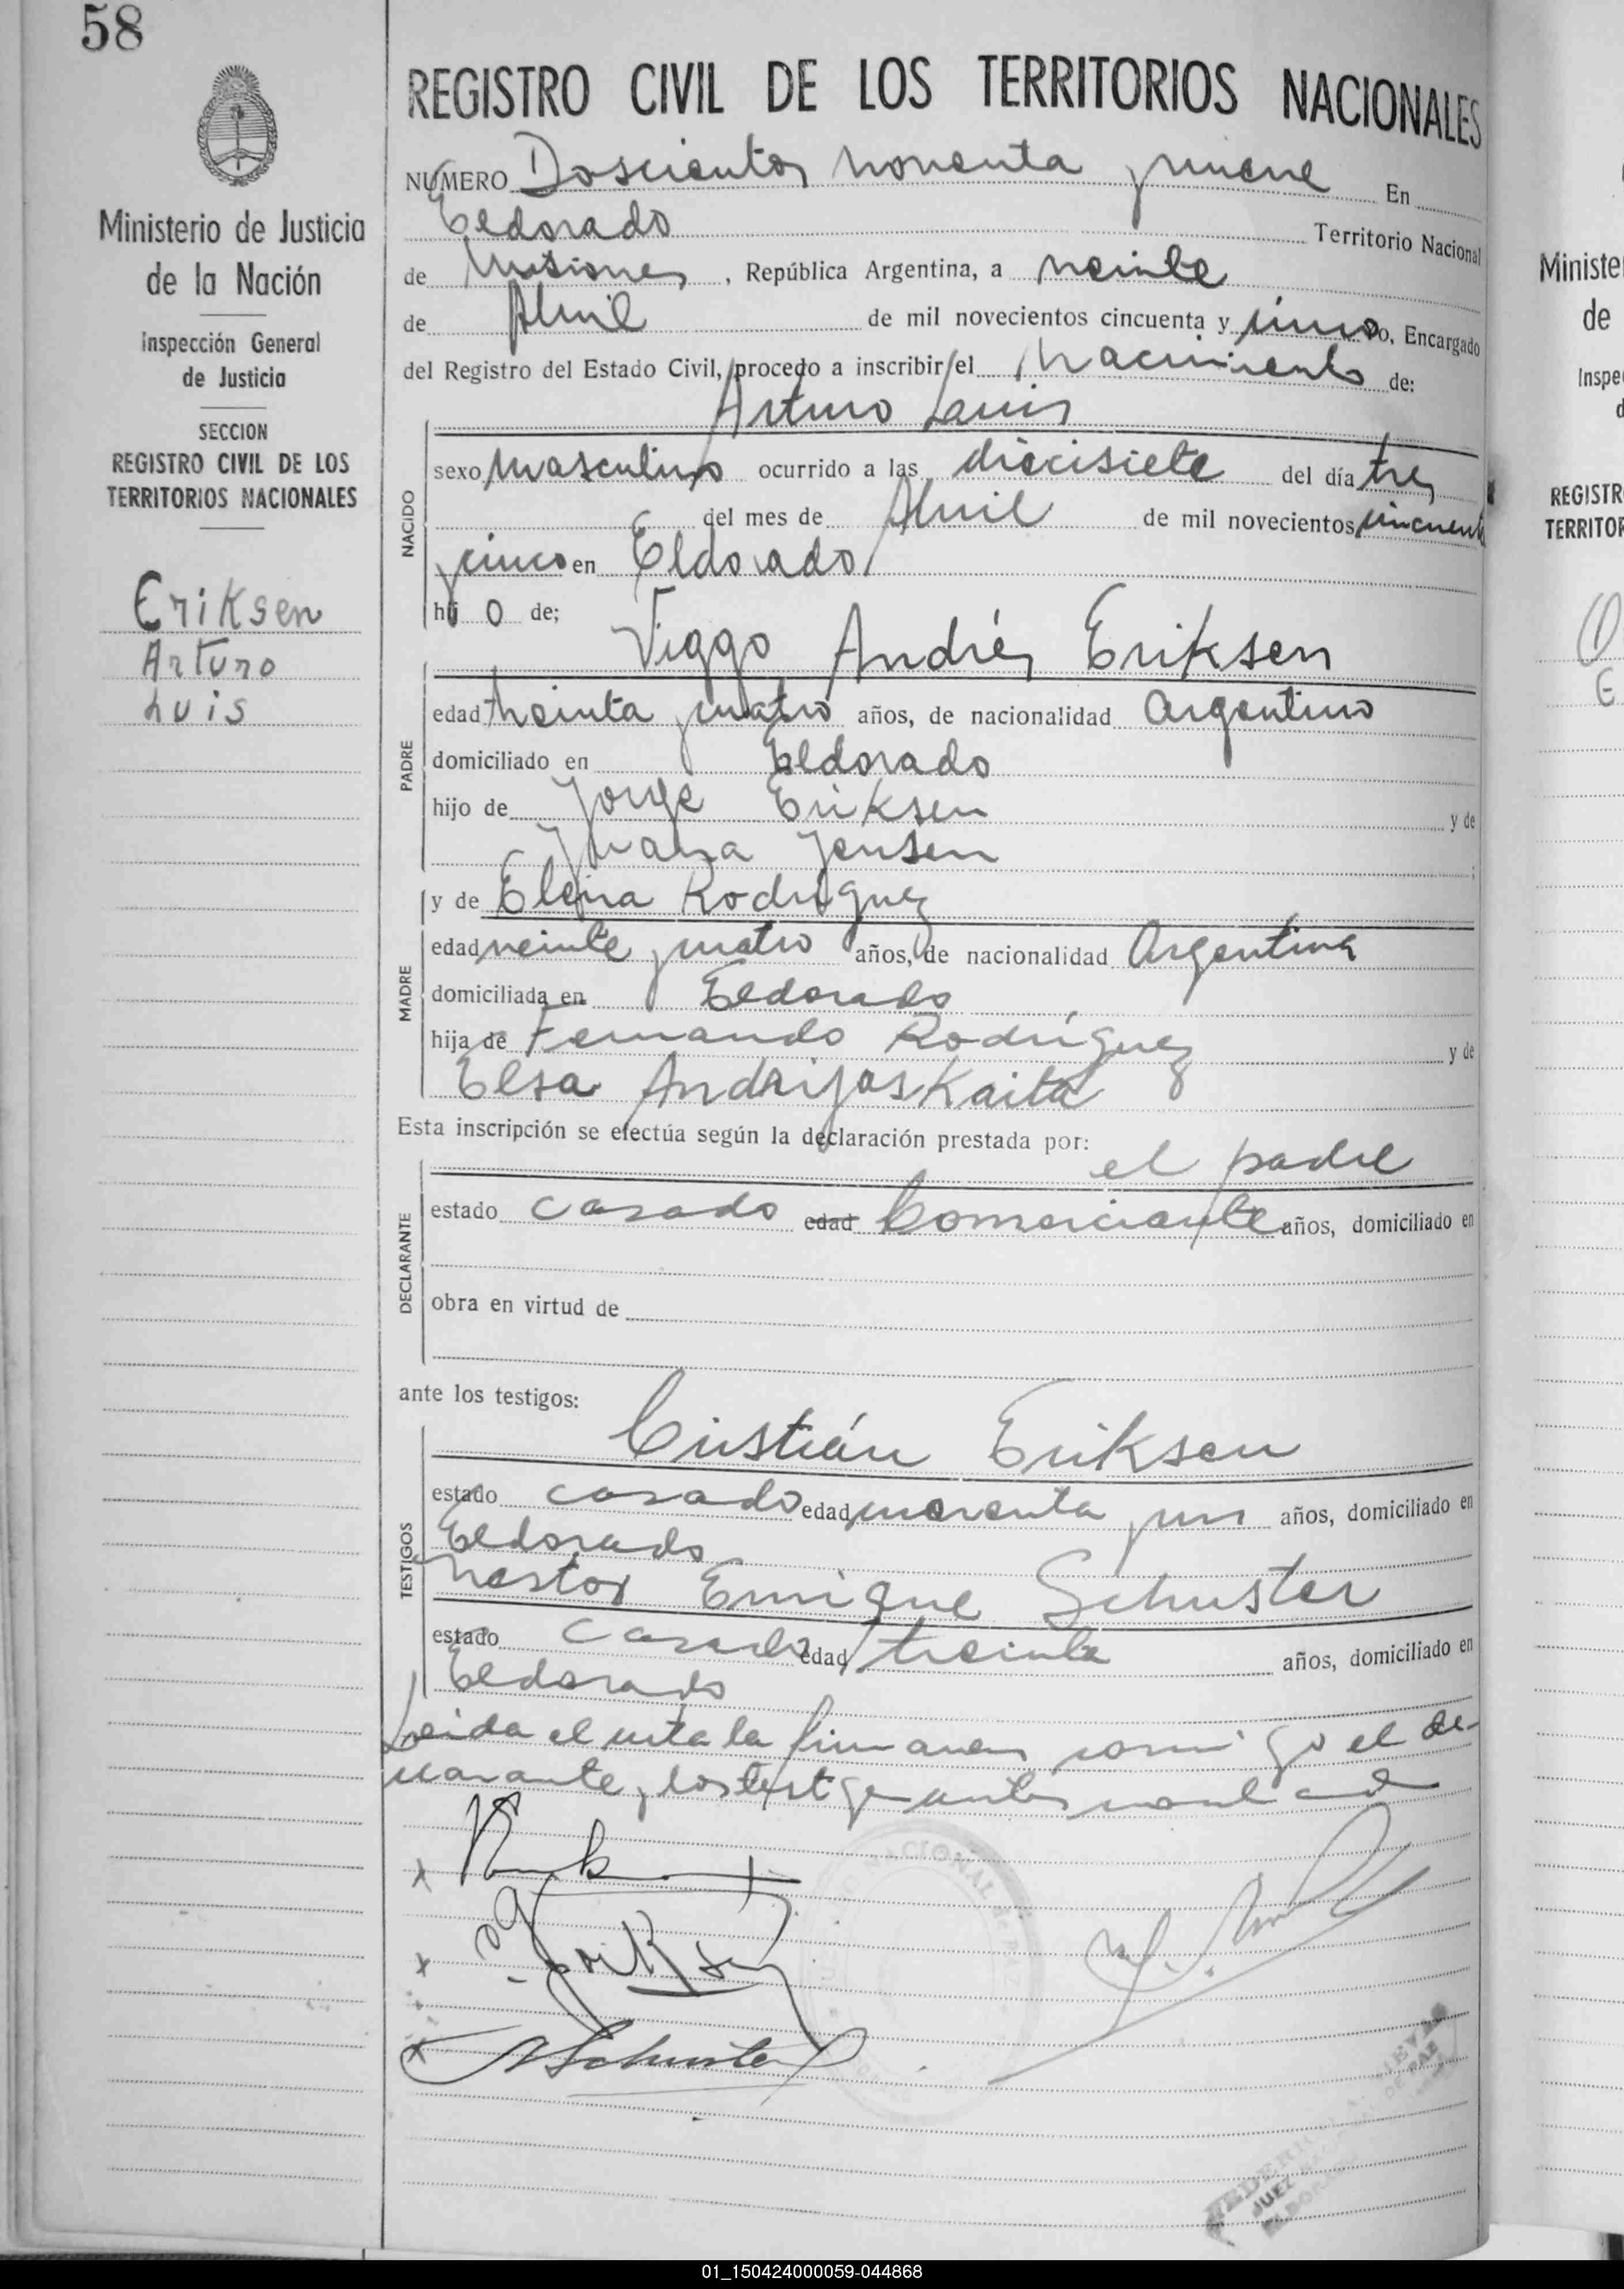 58
Ministerio de Justicia
de la Nación
Inspección General
de Justicia
SECCION
REGISTRO CIVIL DE LOS
TERRITORIOS NACIONALES
Eriksen
Arturo
Luis
REGISTRO CIVIL DE LOS TERRITORIOS NACIONALES
NUMERO Doscientos noventa y nueve En
Eldorado Territorio Nacional
de Misiones, República Argentina, a veinte
de Abril de mil novecientos cincuenta y cinco, Encargado
del Registro del Estado Civil, procedo a inscribir el Nacimiento de:
Arturo Luis
NACIDO
sexo masculino ocurrido a las diecisiete del día tres
del mes de Abril de mil novecientos cincuenta
y cinco en Eldorado
hij o de;
Viggo Andrés Eriksen
PADRE
edad treinta y cuatro años, de nacionalidad Argentino
domiciliado en Eldorado
hijo de Jorge Eriksen y de
Juana Jensen ;
y de Elena Rodríguez
MADRE
edad veinte y cuatro años, de nacionalidad Argentina
domiciliada en Eldorado
hija de Fernando Rodríguez y de
Elsa Andrijaskaita
Esta inscripción se efectúa según la declaración prestada por:
el padre
DECLARANTE
estado casado edad Comerciante años, domiciliado en
obra en virtud de
ante los testigos:
Cristián Eriksen
TESTIGOS
estado casado edad cuarenta y un años, domiciliado en
Eldorado
Nestor Enrique Schuster
estado casado edad treinta años, domiciliado en
Eldorado
Leida el acta la firmaron conmigo el de-
clarante y los testigos
Schuster
NACIONAL
JUEZ
DE PAZ
Ministe
de
Inspe
d
REGISTR
TERRITOR
E
01_150424000059-044868